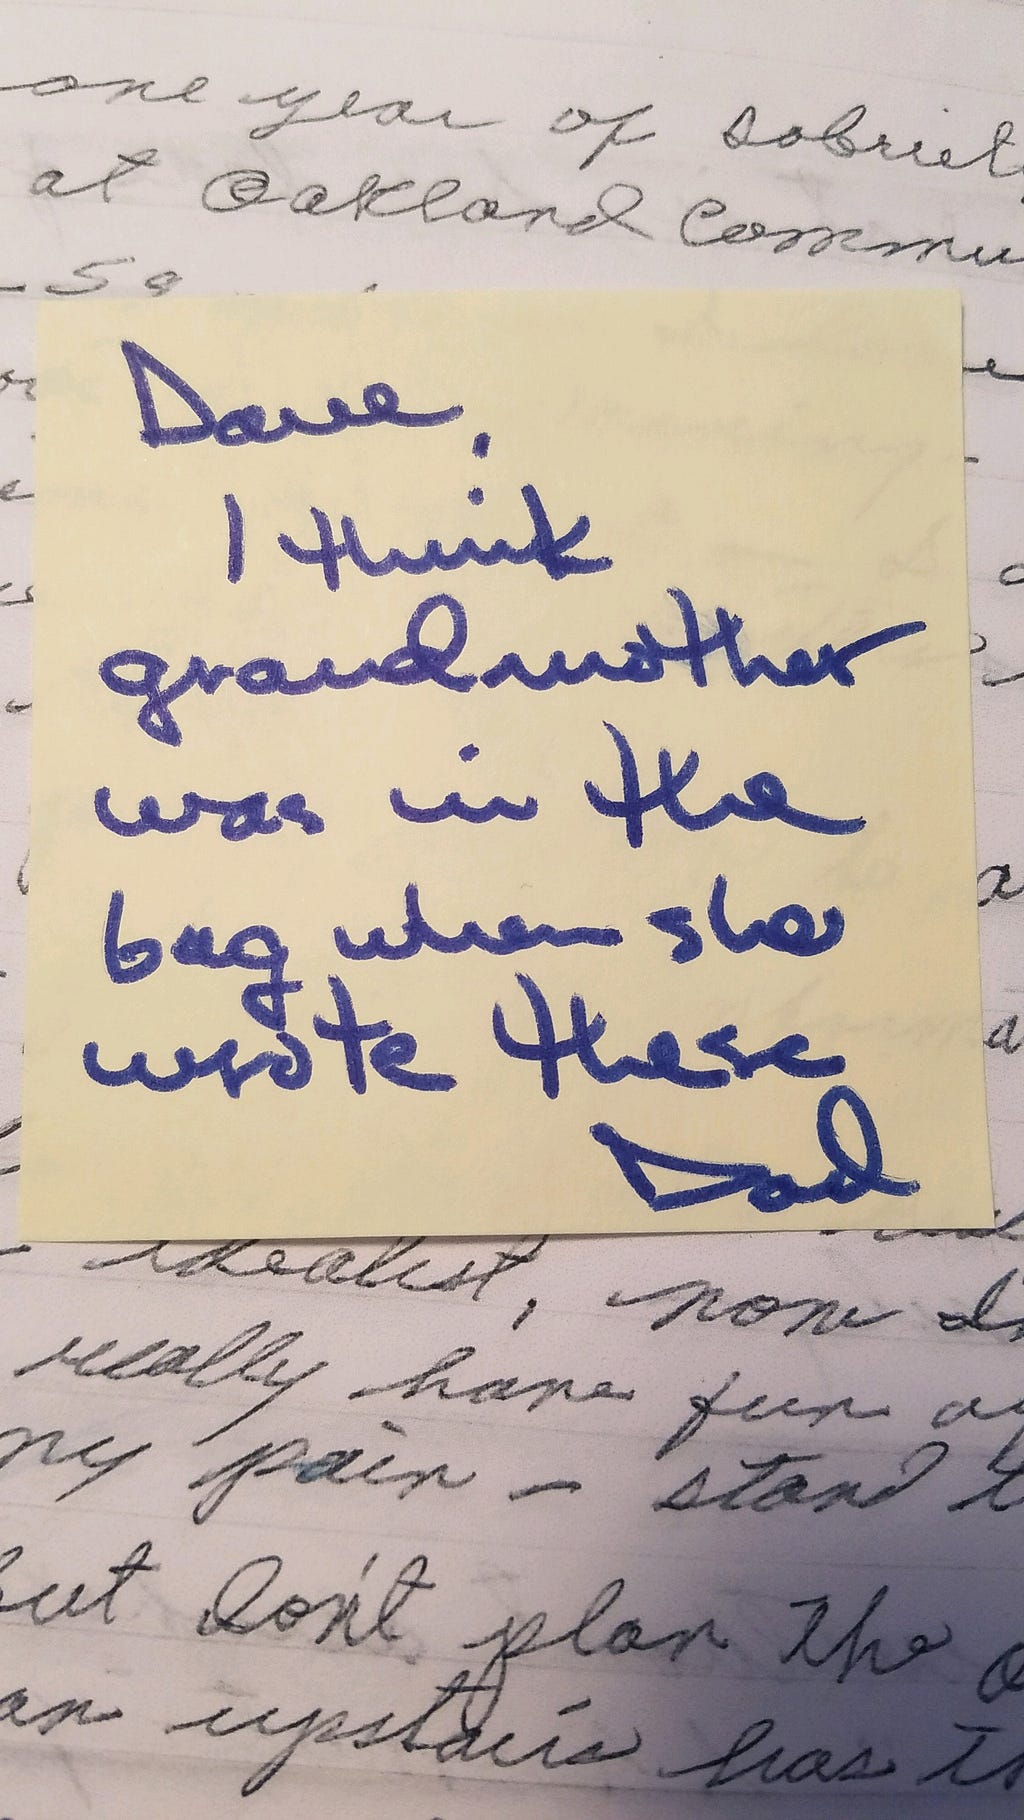 one year of sobriet
at Oakland Commu
Dave,
I think
grandmother
was in the
bag when she
wrote these
Dad
idealist, now I
really have fun
my pain - stand
but don't plan the
an upstairs has